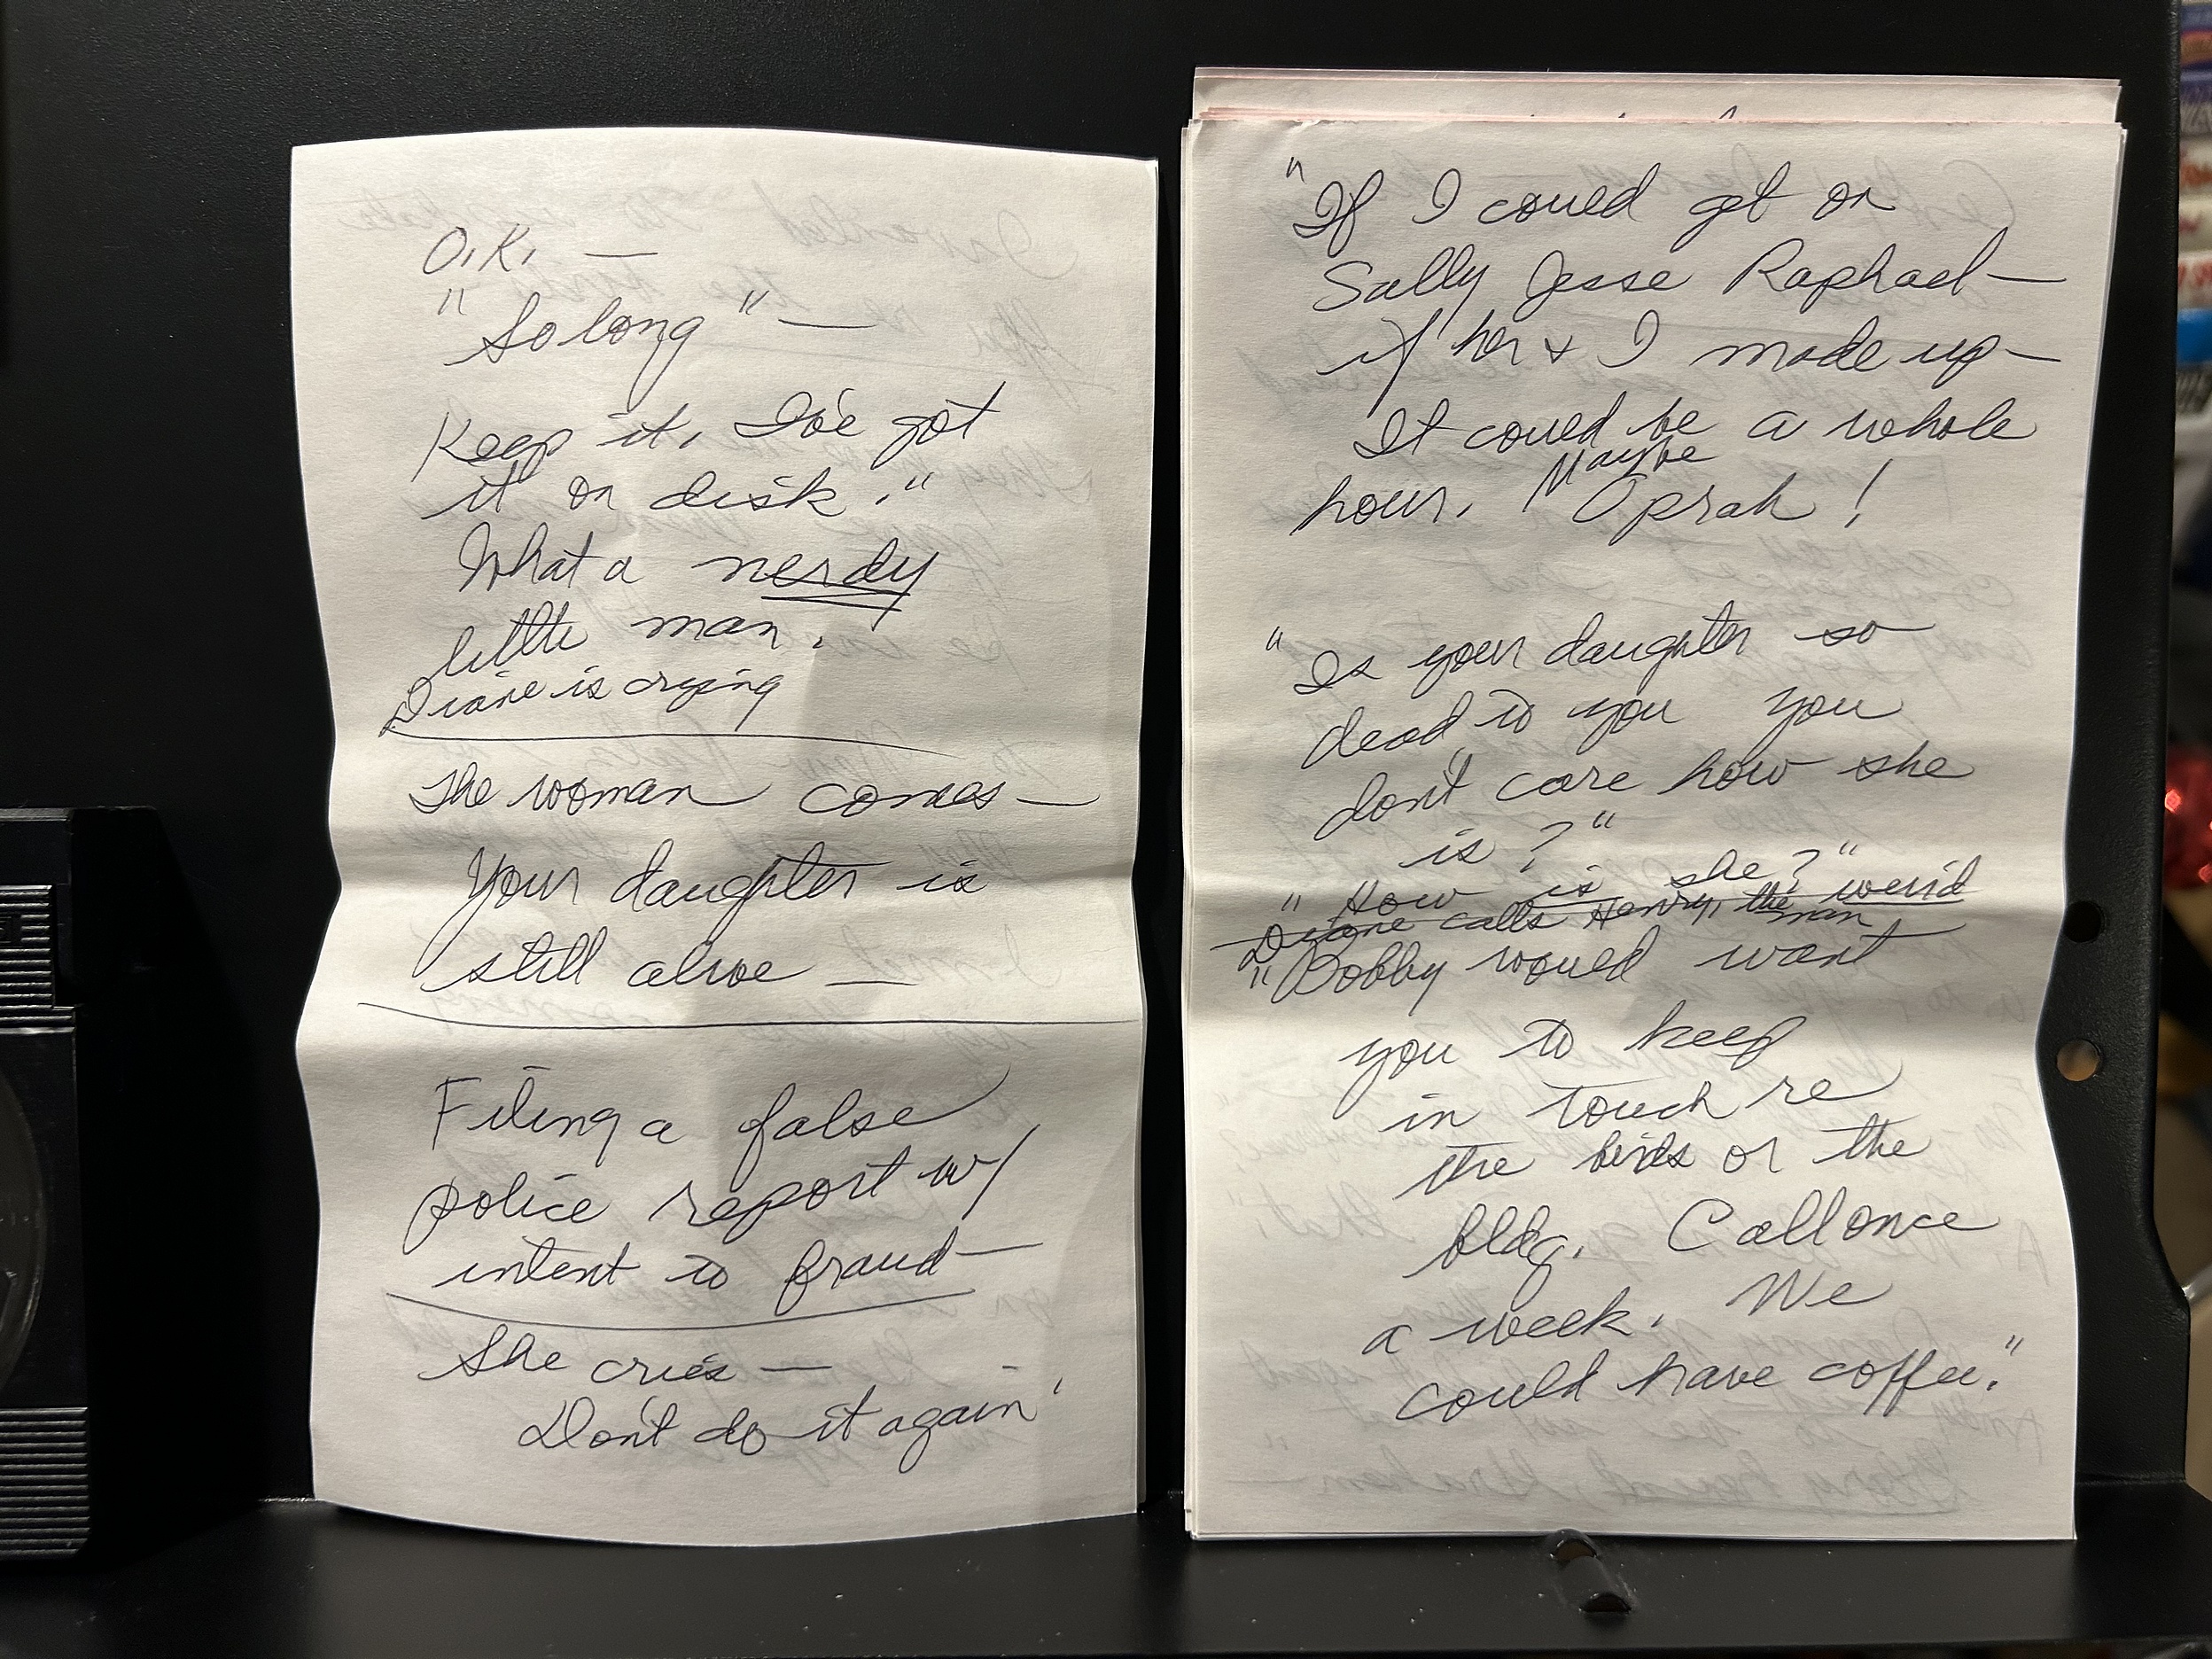 O.K. —
"So long" —
Keep it, I've got
it on disk."
What a nerdy
little man.
Diane is crying
The woman comes —
Your daughter is
still alive —
Filing a false
police report w/
intent to fraud —
She cries —
Don't do it again'
"If I could get on
Sally Jesse Raphael —
if her & I made up —
It could be a whole
Maybe
hour. Oprah!
"Is your daughter so
dead to you you
don't care how she
is?"
"How is she?"
Diane calls Henry, the weird
man
"Bobby would want
you to keep
in touch re
the birds or the
bldg. Call once
a week. We
could have coffee."